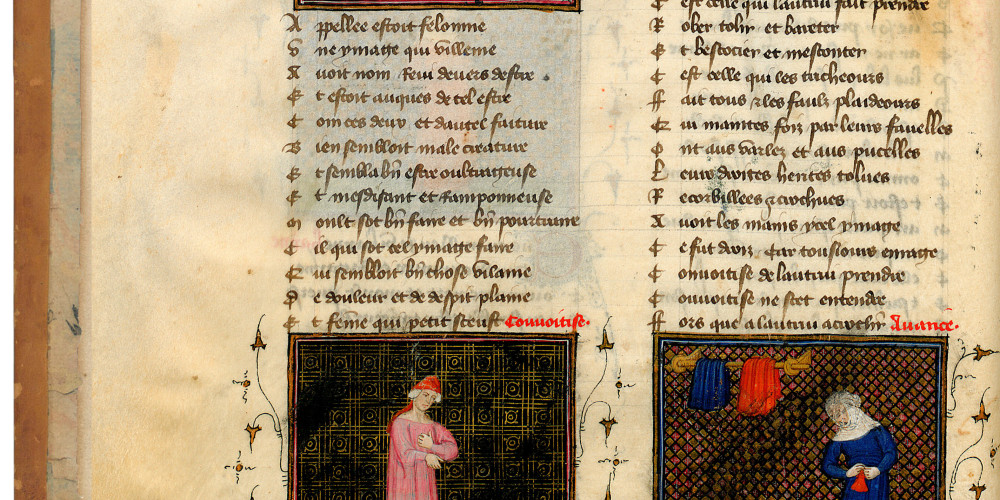 Appellee estoit felonnie
Une ymage qui villenie
Avoit nom Revi devers destre .
Et estoit auques de tel estre
Com ces deux et dautel faiture
Bien sembloit male creature
Et sembla bn̄ estre oultrageuse
Et mesdisant et ramponneuse
Moult sot bn̄ faire et bn̄ pourtraire
Cil qui sot tel ymage faire
Qui sembloit bn̄ chose vilaine
De douleur et de despit plaine
Et fēme qui petit sceust Couvoitise.
Cest celle qui lautrui fait prendre
Rober tolir et bareter
Et bescocier et mesconter
Cest celle qui les tricheours
Fait tous ⁊ les faulz plaideours
Qui maintes foiz par leurs favelles
Ont aus varlez et aus pucelles
Leurs droites herites tolues
Recorbillees ⁊ crochues
Avoit les mains ycel ymage
Ce fut droiz Car tousiours enrage
Convoitise de lautrui prendre
Convoitise ne scet entendre
Fors que a lautrui acrochr̄ Avarice.